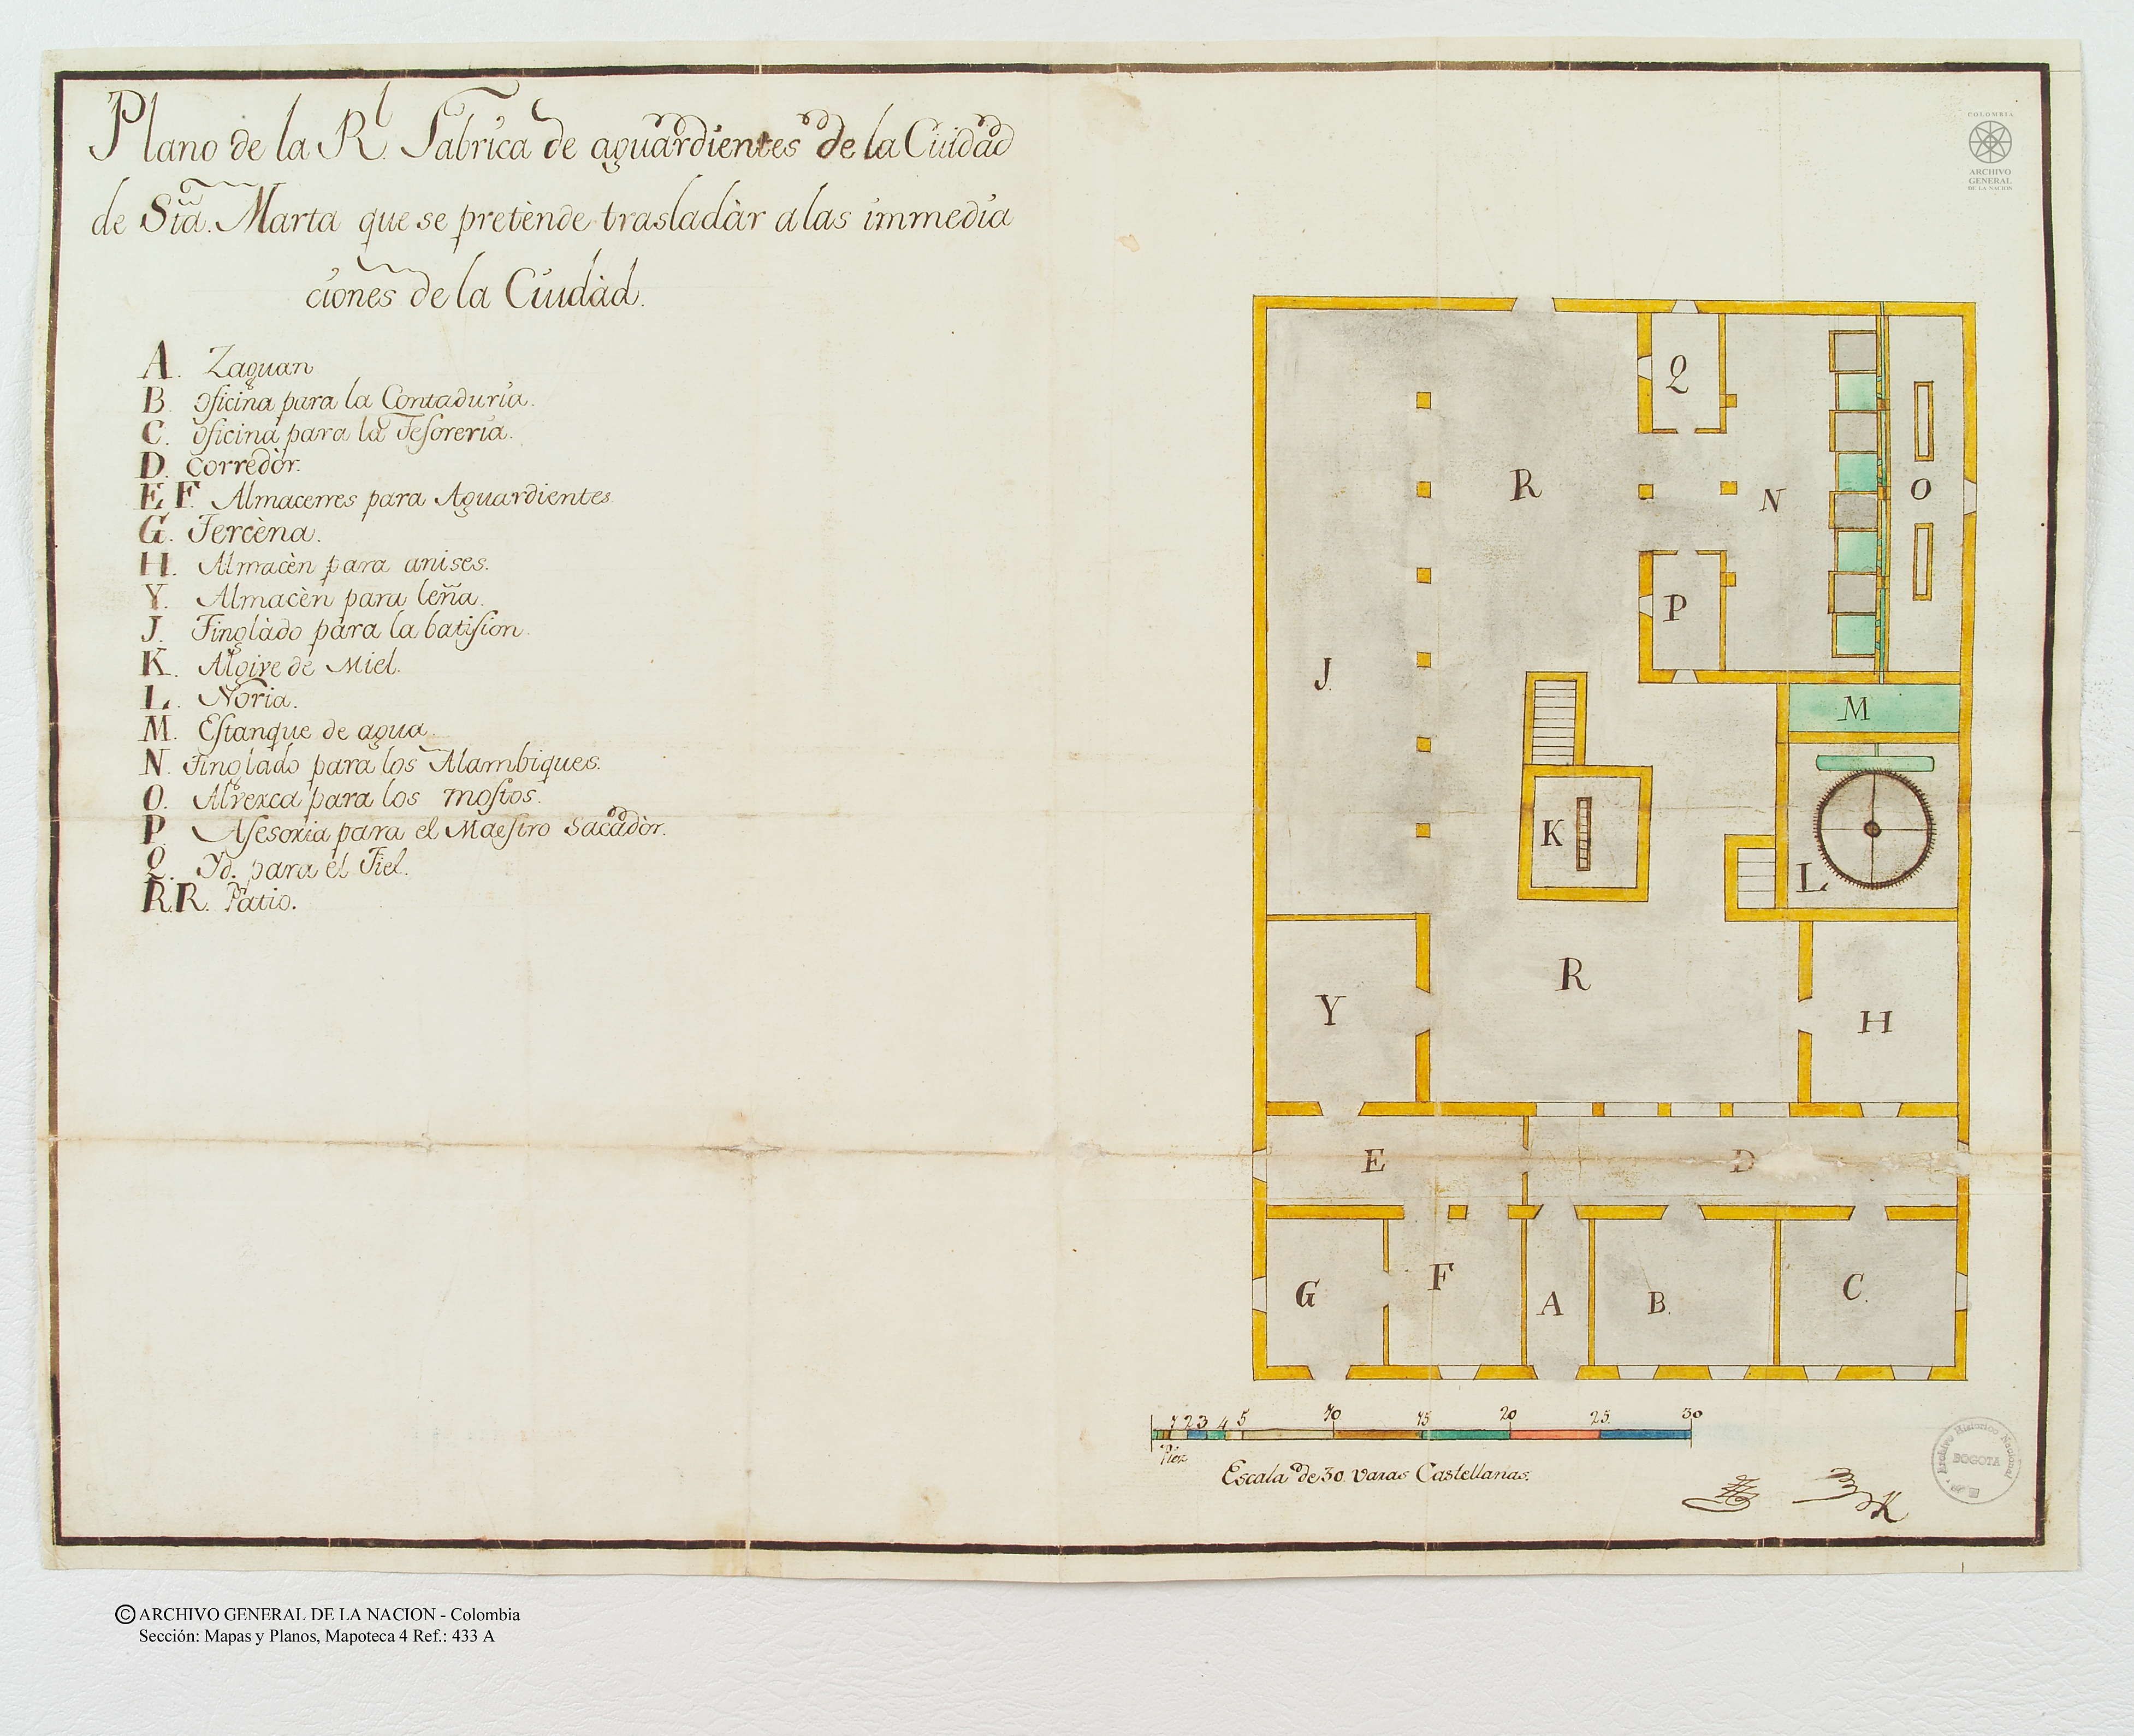 Plano de la Rl. Fabrica de aguardientes de la Ciudad
de Sta. Marta que se pretènde trasladàr a las immedia
ciones de la Ciudàd.
A. Zaguan
B. oficina para la Contaduria.
C. oficina para la Tesoreria.
D. corredòr.
E, F. Almacenes para Aguardientes.
G. Tercèna.
H. Almacèn para anises.
Y. Almacèn para leña.
J. Tinglàdo para la batision.
K. Algive de Miel.
L. Noria.
M. Estanque de agua.
N. Tinglado para los Alambiques.
O. Alverca para los mostos.
P. Asesoria para el Maestro Sacadòr.
Q. Yd. para el Fiel.
R.R. Patio.
COLOMBIA
ARCHIVO
GENERAL
DE LA NACION
Q
R
N
O
P
J.
M
K
L
R
Y
H
E
D
G
F
A
B.
C.
1 2 3 4 5 10 15 20 25 30
Piez
Escala de 30 varas Castellanas.
Archivo Historico Nacional
BOGOTA
© ARCHIVO GENERAL DE LA NACION - Colombia
Sección: Mapas y Planos, Mapoteca 4 Ref.: 433 A